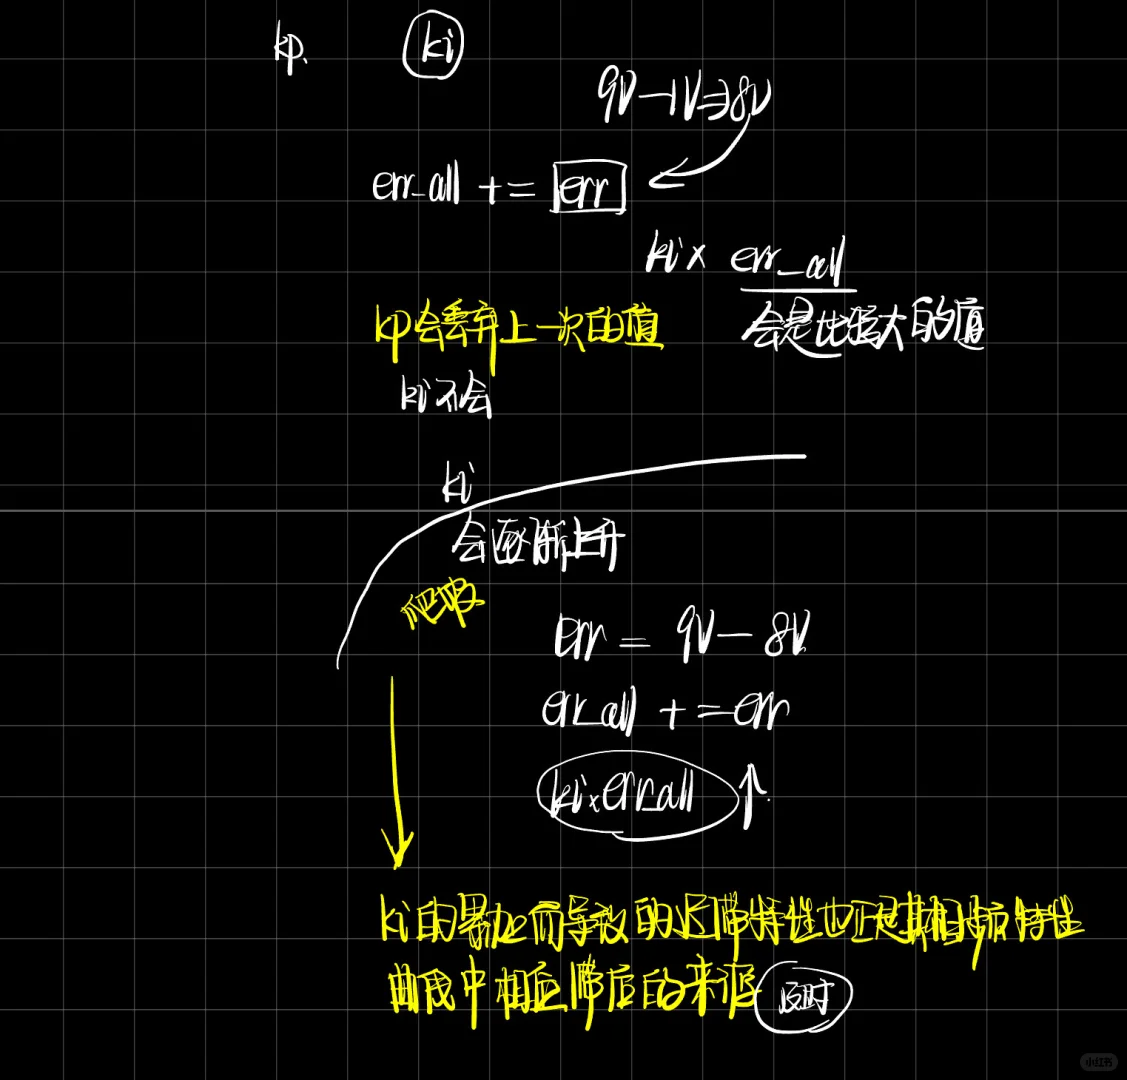 kp. ki
9V-1V=>8V
err_all += err
ki× err_all
kp会丢弃上一次的值
会是比较大的值
ki不会
ki
会逐渐上升
爬坡
err = 9V-8V
err_all +=err
ki×err_all ↑
ki的累加而导致的迟滞特性也正是其相频特性
曲线中相应滞后的来源
及时
小红书